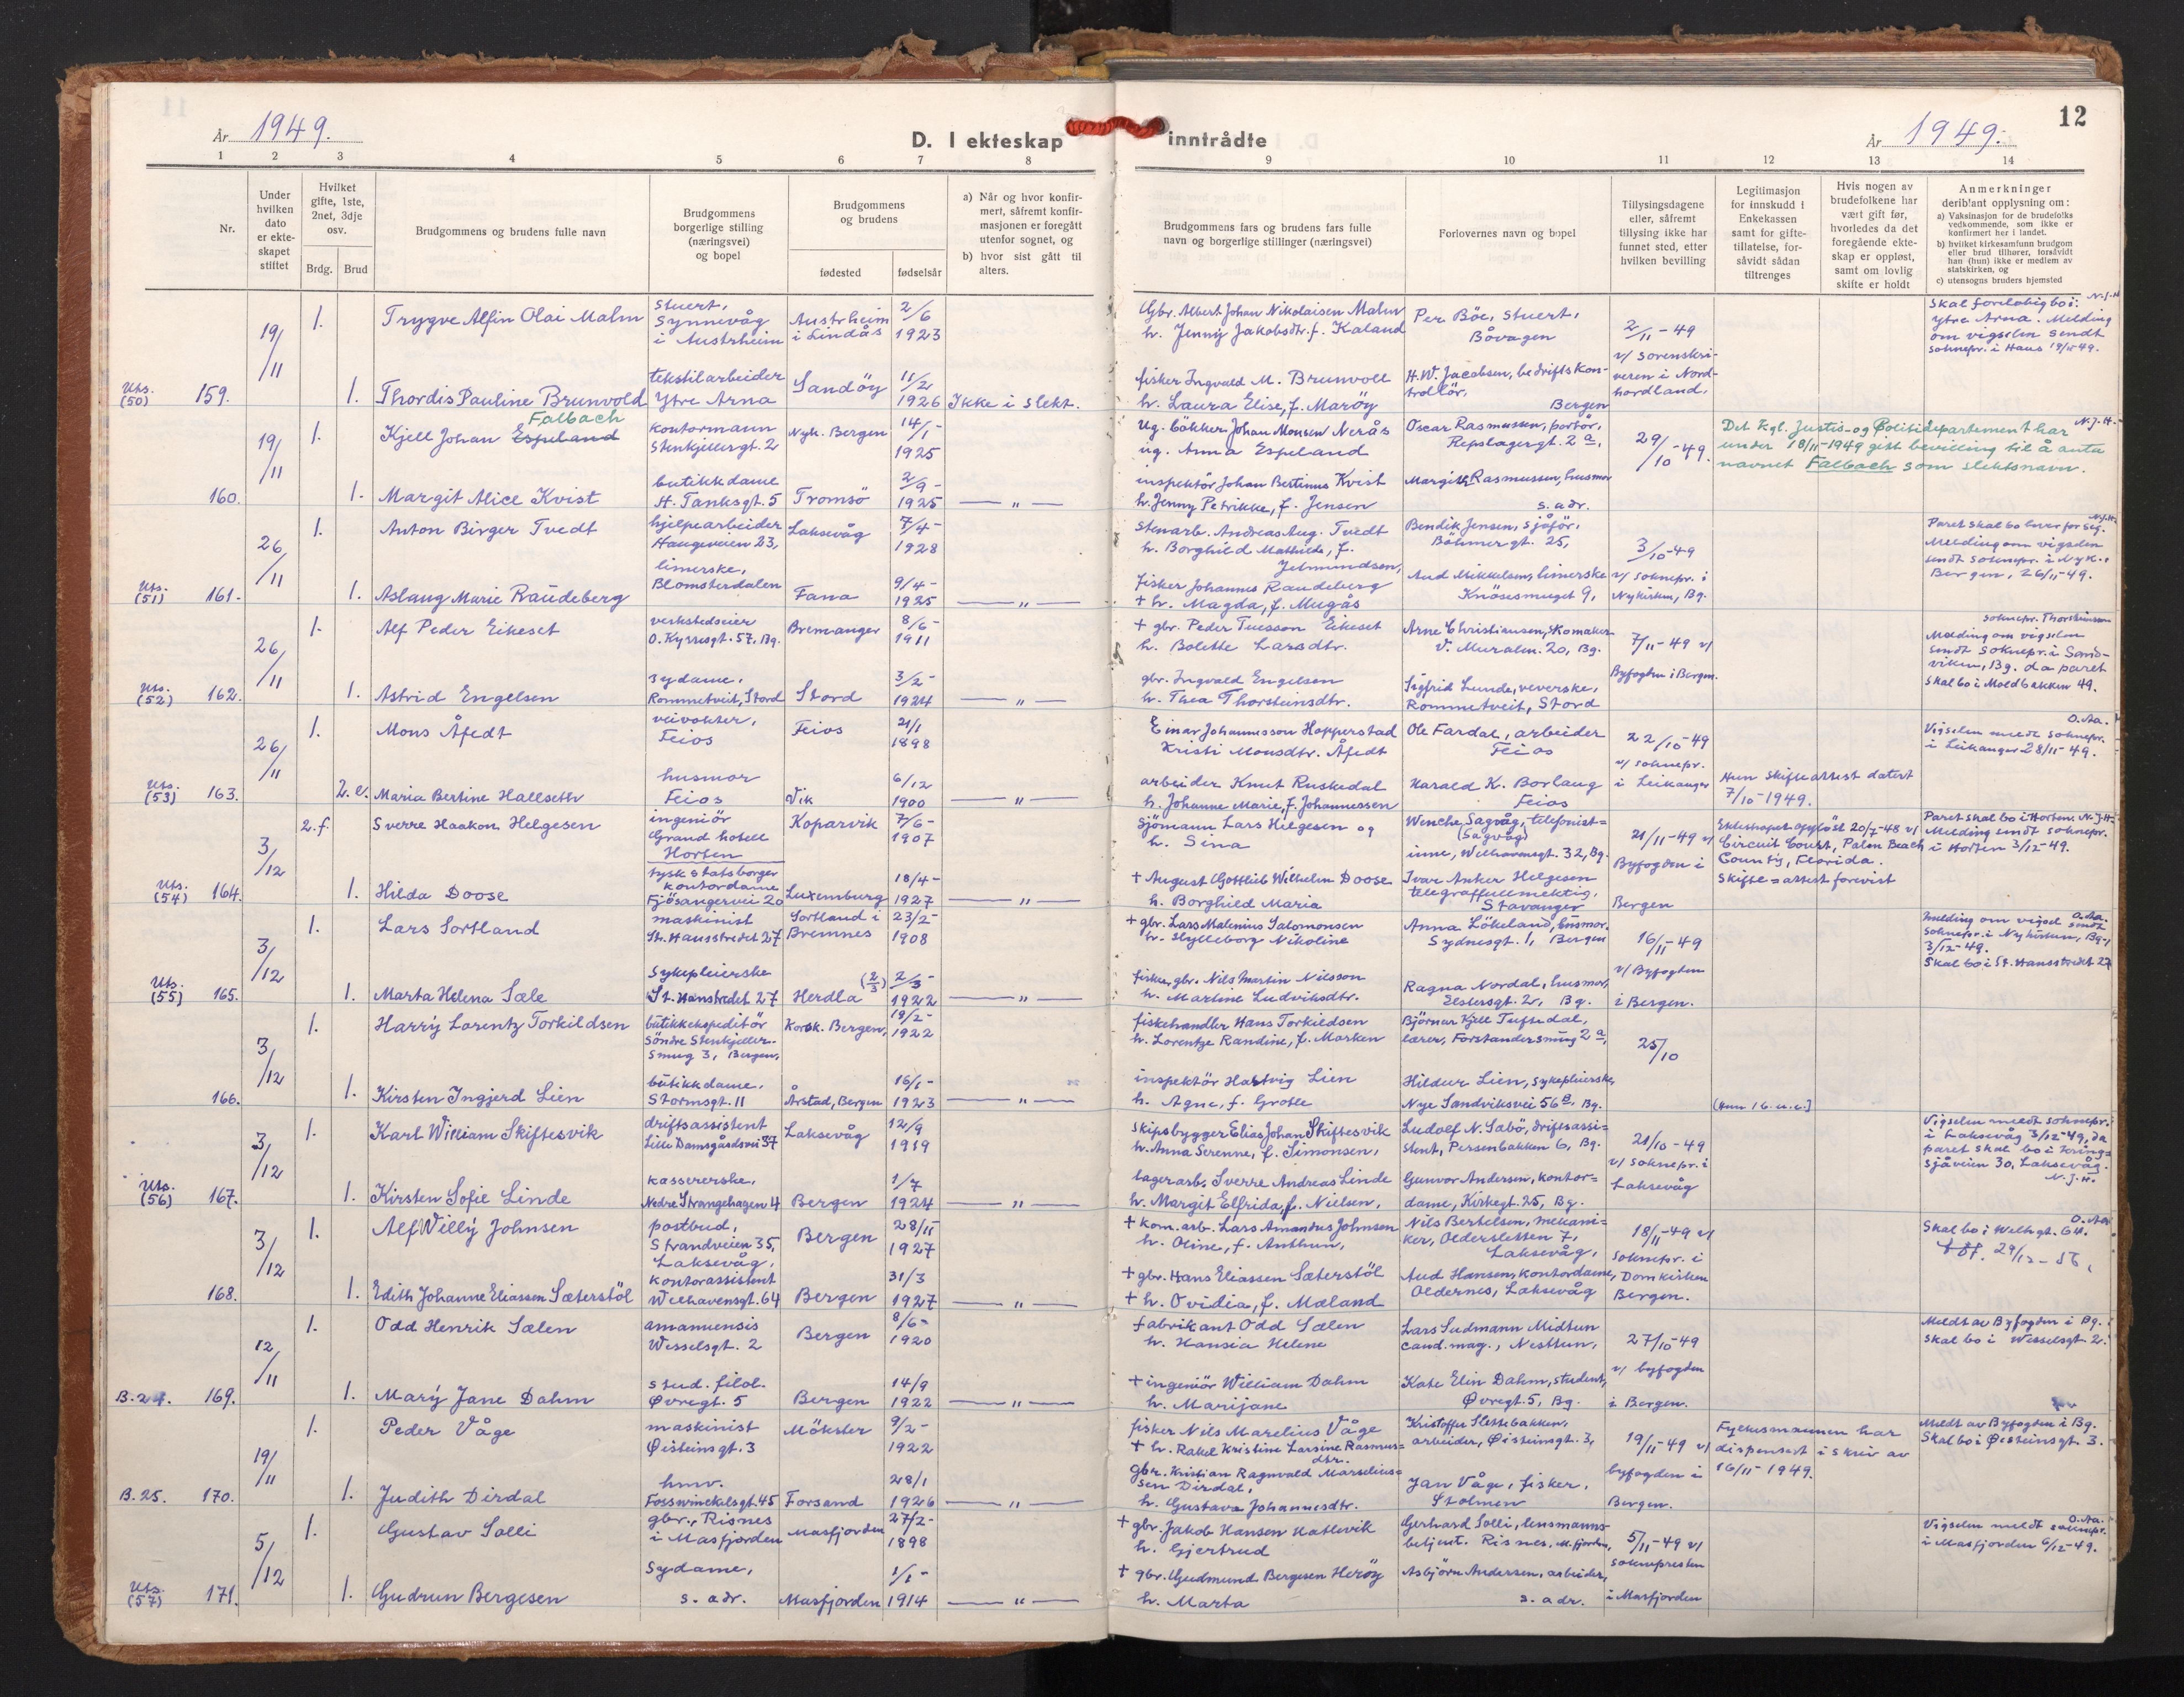 År 1949.
D. I ekteskap inntrådte
År 1949.
12
1 2 3 4 5 6 7 8 9 10 11 12 13 14
Nr.
Under hvilken dato er ekteskapet stiftet
Hvilket gifte, 1ste, 2net, 3dje osv.
Brdg. Brud
Brudgommens og brudens fulle navn
Brudgommens borgerlige stilling (næringsvei) og bopel
Brudgommens og brudens
fødested
fødselsår
a) Når og hvor konfirmert, såfremt konfirmasjonen er foregått utenfor sognet, og
b) hvor sist gått til alters.
Brudgommens fars og brudens fars fulle navn og borgerlige stillinger (næringsvei)
Forlovernes navn og bopel
Tillysingsdagene eller, såfremt tillysing ikke har funnet sted, etter hvilken bevilling
Legitimasjon for innskudd i Enkekassen samt for giftetillatelse, forsåvidt sådan tiltrenges
Hvis nogen av brudefolkene har vært gift før, hvorledes da det foregående ekteskap er oppløst, samt om lovlig skifte er holdt
Anmerkninger deriblant opplysning om:
a) Vaksinasjon for de brudefolks vedkommende, som ikke er konfirmert her i landet.
b) hvilket kirkesamfunn brudgom eller brud tilhører, forsåvidt han (hun) ikke er medlem av statskirken, og
c) utensogns bruders hjemsted
Uts. (50) 159. 19/11
1. Trygve Alfin Olai Malm
stuert, Synnevåg i Austrheim
Austrheim i Lindås
2/6 1923
Gbr. Albert Johan Nikolaisen Malm
h. Jenny Jakobsdtr. f. Kaland
Per Böe, stuert, Bövagen
2/11-49 v/ sorenskriveren i Nordhordland.
Skal foreløbig bo i Ytre Arna. Melding om vigselen sendt soknepr. i Haus 19/11-49. N.J.H.
1. Thordis Pauline Brunvold
tekstilarbeider Ytre Arna
Sandöy
11/2 1926
Ikke i slekt.
fisker Ingvald M. Brunvoll
h. Laura Elise, f. Maröy
H.W. Jacobsen, bedriftskontrollör, Bergen
160. 19/11
1. Kjell Johan Espeland Falbach
kontormann Stenkjellergt. 2
Nyk. Bergen
14/1- 1925
Ug. bökker Johan Monsen Nerås
ug. Anna Espeland
Oscar Rasmussen, portör, Repslagergt. 2 a,
29/10-49.
Det Kgl. Justis- og Politidepartement har under 18/11-1949 gitt bevilling til å anta navnet Falbach som slektsnavn. N.J.H.
1. Margit Alice Kvist
butikkdame H. Tanksgt. 5
Tromsö
2/9- 1925
— " —
inspektör Johan Bertinus Kvist
h. Jenny Petrikke, f. Jensen
Margith Rasmussen, husmor s. adr.
Uts. (51) 161. 26/11
1. Anton Birger Tvedt
hjelpearbeider Haugeveien 23,
Laksevåg
7/4- 1928
Stenarb. Andreas Aug. Tvedt
h. Borghild Mathilde, f. Jetmundsen,
Bendik Jensen, sjåför, Böhmergt. 25,
3/10-49 v/ soknepr. i Nykirken, Bg.
Paret skal bo hver for seg. Melding om vigselen sendt soknepr. i Nyk., Bergen, 26/11-49. N.J.H.
1. Aslaug Marie Raudeberg
limerske, Blomsterdalen
Fana
9/4- 1925
— " —
fisker Johannes Raudeberg
+ h. Magda, f. Mugås
Aud Mikkelsen, limerske Knösesmuget 9,
Uts. (52) 162. 26/11
1. Alf Peder Eikeset
verkstedseier O. Kyrresgt. 57, Bg.
Bremanger
8/6- 1911
+ gbr. Peder Tuesson Eikeset
h. Bolette Larsdtr.
Arne Christiansen, skomaker V. Muralm. 20, Bg.
7/11-49 v/ Byfogden i Bergen.
Melding om vigselen sendt soknepr. i Sandviken, Bg. da paret skal bo i Moldbakken 49.
1. Astrid Engelsen
sydame, Rommetveit, Stord
Stord
3/2- 1924
— " —
gbr. Ingvald Engelsen
h. Thea Thorsteinsdtr.
Sigfrid Lunde, veverske, Rommetveit, Stord
Uts. (53) 163. 26/11
1. Mons Åfedt
veivokter, Feios
Feios
21/1 1898
Einar Johannesson Hopperstad
Kristi Monsdtr. Åfedt
Ole Fardal, arbeider Feios
22/10-49 v/ soknepr. i Leikanger
Vigselen meldt soknepr. i Leikanger 28/11-49. O.Aa.
2. e. Maria Bertine Hallseth
husmor Feios
Vik
6/12 1900
— " —
arbeider Knut Ruskedal
h. Johanne Marie, f. Johannessen
Harald K. Borlaug Feios
Hun skifteattest datert 7/10-1949.
Uts. (54) 164. 3/12
2. f. Sverre Haakon Helgesen
ingeniör Grand hotell Horten
Koparvik
7/6- 1907
Sjömann Lars Helgesen og
h. Sina
Wenche Sagvåg, telefonistinne, Welhavensgt. 32, Bg.
(Sagvåg)
21/11-49 v/ Byfogden i Bergen
Ekteskapet opplöst 20/7-48 v/ Circuit Court, Palm Beach County, Florida. Skifte=attest forevist
Paret skal bo i Horten. N.J.H. Melding sendt soknepr. i Horten 3/12-49.
1. Hilda Doose
tysk statsborger kontordame Fjösangervei 20
Luxemburg
18/4- 1927
— " —
+ August Gottlieb Wilhelm Doose
h. Borghild Maria
Ivar Anker Helgesen telegraffullmektig, Stavanger
Uts. (55) 165. 3/12
1. Lars Sortland
maskinist St. Hansstredet 27
Sortland i Bremnes
23/2- 1908
+ gbr. Lars Malenius Salomonsen
h. Hylleborg Nikoline
Anna Lökeland, husmor, Sydnesgt. 1, Bergen
16/11-49 v/ Byfogden i Bergen.
Melding om vigsel sendt soknepr. i Nykirken, Bg., 3/12-49. O.Aa.
Skal bo i St. Hansstredet 27
1. Marta Helena Sæle
Sykepleierske St. Hanstredet 27
Herdla
(2/3) 2/3- 1922
— " —
fisker, gbr. Nils Martin Nilsson
h. Martine Ludviksdtr.
Ragna Nordal, husmor, Elstersgt. 2, Bg.
166. 3/12
1. Harry Lorentz Torkildsen
butikkekspeditör Söndre Stenkjellersmug 3, Bergen,
Korsk. Bergen,
19/2- 1922
fiskehandler Hans Torkildsen
h. Lorentze Randine, f. Marken
Björnar Kjell Tuftedal, lærer, Forstandersmug 2 a,
25/10
1. Kirsten Ingjerd Lien
butikkdame, Stormsgt. 11
Årstad, Bergen
16/1- 1923
— " —
inspektör Hartvig Lien
h. Agne, f. Grotle
Hildur Lien, sykepleierske, Nye Sandviksvei 56 a, Bg.
Uts. (56) 167. 3/12
1. Karl William Skiftesvik
driftsassistent Lille Damsgårdsvei 37
Laksevåg
12/9 1919
skipsbygger Elias Johan Skiftesvik
h. Anna Serenne, f. Simonsen,
Ludolf N. Sabö, driftsassistent, Persenbakken 6, Bg.
21/10-49 v/ soknepr. i Laksevåg
Vigselen meldt soknepr. i Laksevåg 3/12-49, da paret skal bo i Kringsjåveien 30, Laksevåg. N.J.H.
1. Kirsten Sofie Linde
kassererske, Nedre Strangehagen 4
Bergen
1/7 1924
— " —
lagerarb. Sverre Andreas Linde
h. Margit Elfrida, f. Nielsen,
Gunvor Andersen, kontordame, Kirkegt. 25, Bg.
168. 3/12
1. Alf Willy Johnsen
postbud, Strandveien 35, Laksevåg,
Bergen
28/11 1927
+ kom. arb. Lars Amandus Johnsen
h. Oline, f. Anthun,
Nils Bertelsen, mekaniker, Oldersletten 7, Laksevåg,
18/11-49 v/ soknepr. i Domkirken Bergen.
Skal bo i Welhgt. 64. O.Aa.
29/12-56,
1. Edith Johanne Eliassen Sæterstöl
kontorassistent Welhavensgt. 64
Bergen
31/3 1927
— " —
+ gbr. Hans Eliassen Sæterstöl
+ h. Ovidia, f. Mæland
Aud Hansen, kontordame, Oldernes, Laksevåg
B. 24. 169. 12/11
1. Odd Henrik Sælen
amanuensis Wesselsgt. 2
Bergen
8/6- 1920
fabrikant Odd Sælen
h. Hansia Helene
Lars Sudmann Midtun cand. mag., Nesttun,
27/10-49 v/ byfogden i Bergen.
Meldt av Byfogden i Bg. Skal bo i Wesselsgt. 2.
1. Mary Jane Dahm
stud. filol. Øvregt. 5
Bergen
14/9 1922
— " —
+ ingeniör William Dahm
h. Marijane
Kate Elin Dahm, student, Øvregt. 5, Bg.
B. 25. 170. 19/11
1. Peder Våge
maskinist Øisteinsgt. 3
Mökster
9/2- 1922
fisker Nils Marelius Våge
+ h. Rakel Kristine Larsine Rasmusdtr.
Kristoffer Slettebakken, arbeider, Øisteinsgt. 3,
19/11-49 v/ byfogden i Bergen.
Fylkesmannen har dispensert i skriv av 16/11-1949.
Meldt av Byfogden i Bg. Skal bo i Øisteinsgt. 3.
1. Judith Dirdal
hmv. Fosswinckelsgt. 45
Forsand
28/1 1926
— " —
gbr. Kristian Ragnvald Marseliussen Dirdal,
h. Gustava Johannesdtr.
Jan Våge, fisker, Stolmen
Uts. (57) 171. 5/12
1. Gustav Solli
gbr., Risnes i Masfjorden
Masfjorden
27/2- 1898
+ gbr. Jakob Hansen Matlevik
h. Gjertrud
Gerhard Solli, lensmannsbetjent. Risnes, M.fjorden,
5/11-49 v/ soknepresten i Masfjorden
Vigselen meldt soknepr. i Masfjorden 6/12-49. O.Aa.
1. Gudrun Bergesen
Sydame, s. adr.
Masfjorden
1/1- 1914
— " —
+ gbr. Gudmund Bergesen Heröy
h. Marta
Asbjörn Andersen, arbeider, s. adr.